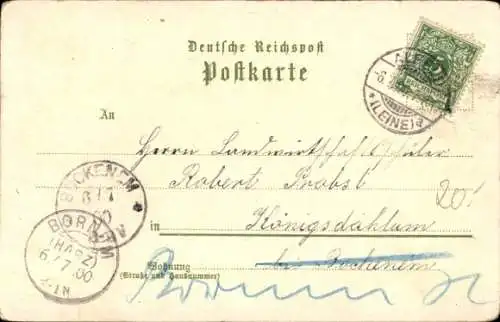 Deutsche Reichspost
Postkarte
*(LEINE)a
An
Herrn Landwirtschaftsschüler
Robert Probst
20.-
BOCKENEM
6/7
00
in Königsdahlum
BORNUM
(HARZ)
6/7 00
8-1N
Wohnung
(Straße und Hausnummer)
bei Bockenem
Bornum